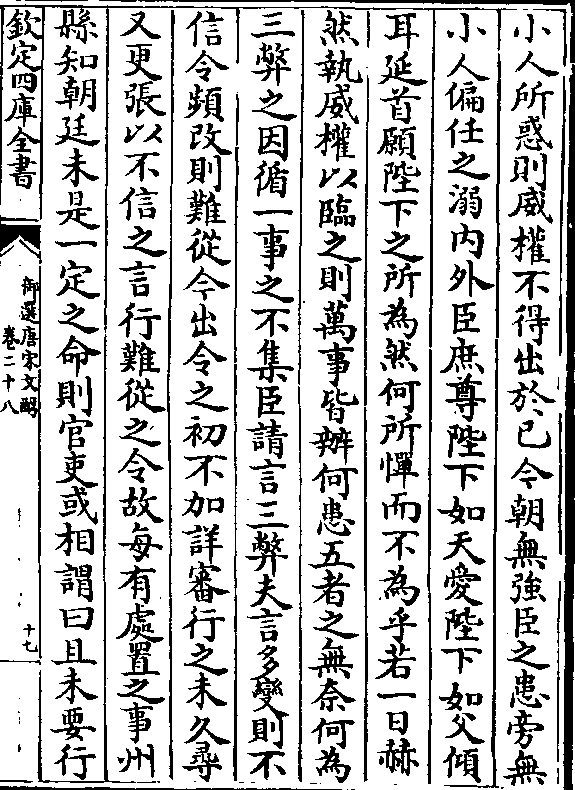 小人所惑則威權不得出於已今朝無強臣之患旁無
小人偏任之溺内外臣庶尊陛下如天愛陛下如父傾
耳延首願陛下之所為然何所憚而不為乎若一日赫
然執威權以臨之則萬事皆辦何患五者之無奈何為
三弊之因循一事之不集臣請言三弊夫言多變則不
信令頻改則難從今出令之初不加詳審行之未久尋
又更張以不信之言行難從之令故每有處置之事州
縣知朝廷未是一定之命則官吏或相謂曰且未要行
欽定四庫全書
御選唐宋文醇
卷二十八
十七